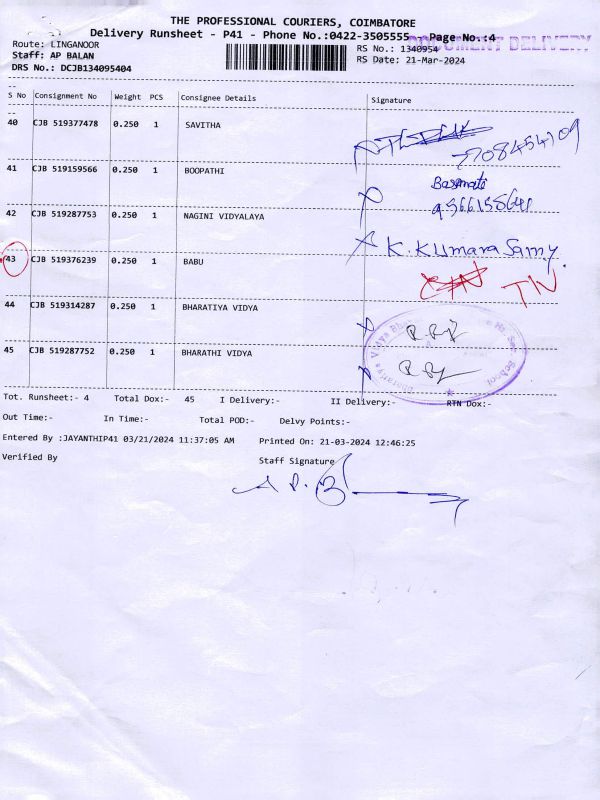 THE PROFESSIONAL COURIERS, COIMBATORE
Delivery Runsheet - P41 - Phone No.:0422-3505555 Page No.:4
DOCUMENT DELIVERY
Route: LINGANOOR RS No.: 1340954
Staff: AP BALAN RS Date: 21-Mar-2024
DRS No.: DCJB134095404
S No Consignment No Weight PCS Consignee Details Signature
40 CJB 519377478 0.250 1 SAVITHA
7708454109
41 CJB 519159566 0.250 1 BOOPATHI
42 CJB 519287753 0.250 1 NAGINI VIDYALAYA
K. Kumara Samy.
43 CJB 519376239 0.250 1 BABU
TN
44 CJB 519314287 0.250 1 BHARATIYA VIDYA
45 CJB 519287752 0.250 1 BHARATHI VIDYA
Tot. Runsheet:- 4 Total Dox:- 45 I Delivery:- II Delivery:- RTN Dox:-
Out Time:- In Time:- Total POD:- Delvy Points:-
Entered By :JAYANTHIP41 03/21/2024 11:37:05 AM Printed On: 21-03-2024 12:46:25
Verified By Staff Signature
A P. B